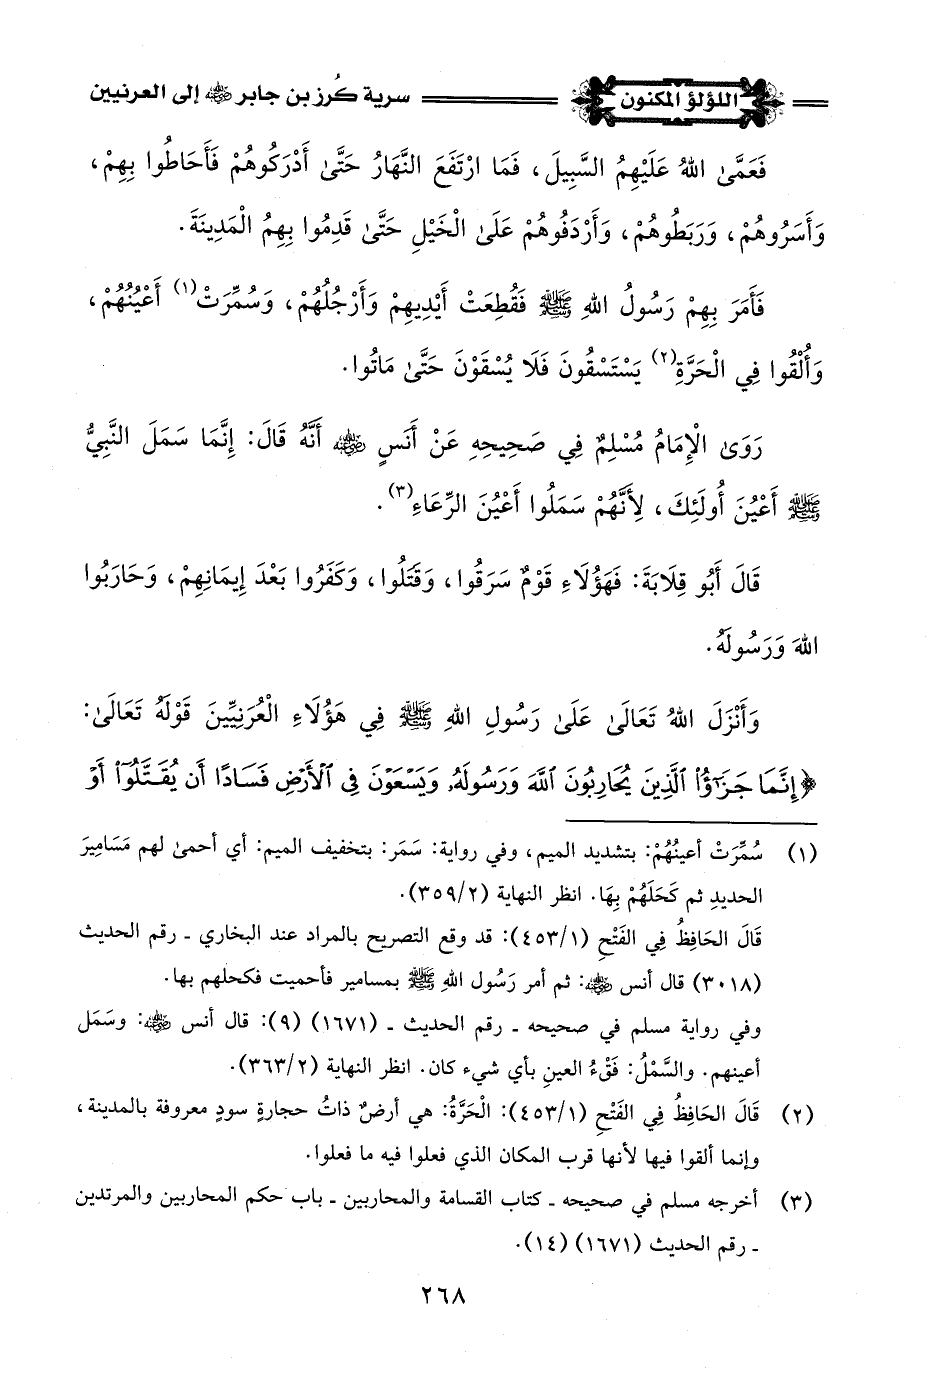 اللؤلؤ المكنون سرية كُرز بن جابر ﵁ إلى العرنيين
فَعَمَّىٰ اللهُ عَلَيْهِمُ السَّبِيلَ، فَمَا ارْتَفَعَ النَّهَارُ حَتَّىٰ أَدْرَكُوهُمْ فَأَحَاطُوا بِهِمْ،
وَأَسَرُوهُمْ، وَرَبَطُوهُمْ، وَأَرْدَفُوهُمْ عَلَىٰ الْخَيْلِ حَتَّىٰ قَدِمُوا بِهِمُ الْمَدِينَةَ.
فَأَمَرَ بِهِمْ رَسُولُ اللهِ ﷺ فَقُطِعَتْ أَيْدِيهِمْ وَأَرْجُلُهُمْ، وَسُمِّرَتْ(١) أَعْيُنُهُمْ،
وَأُلْقُوا فِي الْحَرَّةِ(٢) يَسْتَسْقُونَ فَلَا يُسْقَوْنَ حَتَّىٰ مَاتُوا.
رَوَىٰ الْإِمَامُ مُسْلِمٌ فِي صَحِيحِهِ عَنْ أَنَسٍ ﵁ أَنَّهُ قَالَ: إِنَّمَا سَمَلَ النَّبِيُّ
ﷺ أَعْيُنَ أُولَئِكَ، لِأَنَّهُمْ سَمَلُوا أَعْيُنَ الرِّعَاءِ(٣).
قَالَ أَبُو قِلَابَةَ: فَهَؤُلَاءِ قَوْمٌ سَرَقُوا، وَقَتَلُوا، وَكَفَرُوا بَعْدَ إِيمَانِهِمْ، وَحَارَبُوا
اللهَ وَرَسُولَهُ.
وَأَنْزَلَ اللهُ تَعَالَىٰ عَلَىٰ رَسُولِ اللهِ ﷺ فِي هَؤُلَاءِ الْعُرَنِيِّينَ قَوْلَهُ تَعَالَىٰ:
﴿إِنَّمَا جَزَٰٓؤُا۟ ٱلَّذِينَ يُحَارِبُونَ ٱللَّهَ وَرَسُولَهُۥ وَيَسْعَوْنَ فِى ٱلْأَرْضِ فَسَادًا أَن يُقَتَّلُوٓا۟ أَوْ
(١) سُمِّرَتْ أعينُهُمْ: بتشديد الميم، وفي رواية: سَمَر: بتخفيف الميم: أي أحمىٰ لهم مَسَامِيرَ
الحديدِ ثم كَحَلَهُمْ بِهَا. انظر النهاية (٣٥٩/٢).
قَالَ الحَافِظُ فِي الفَتْحِ (٤٥٣/١): قد وقع التصريح بالمراد عند البخاري ـ رقم الحديث
(٣٠١٨) قال أنس ﵁: ثم أمر رَسُول اللهِ ﷺ بمسامير فأحميت فكحلهم بها.
وفي رواية مسلم في صحيحه ـ رقم الحديث ـ (١٦٧١) (٩): قال أنس ﵁: وسَمَل
أعينهم. والسَّمْلُ: فَقْءُ العينِ بأي شيء كان. انظر النهاية (٣٦٣/٢).
(٢) قَالَ الحَافِظُ فِي الفَتْحِ (٤٥٣/١): الْحَرَّةُ: هي أرضٌ ذاتُ حجارةٍ سودٍ معروفة بالمدينة،
وإنما ألقوا فيها لأنها قرب المكان الذي فعلوا فيه ما فعلوا.
(٣) أخرجه مسلم في صحيحه ـ كتاب القسامة والمحاربين ـ باب حكم المحاربين والمرتدين
ـ رقم الحديث (١٦٧١) (١٤).
٢٦٨